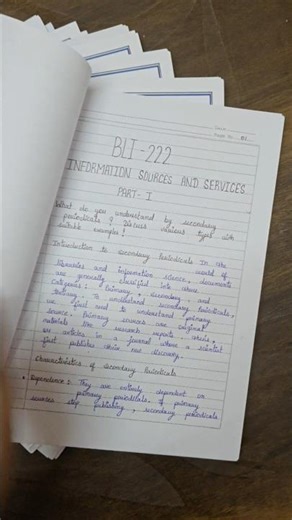 Date
Page No. 01
BLI-222
INFORMATION SOURCES AND SERVICES
PART-I
What do you understand by secondary
periodicals? Discuss various types with
suitable examples!
Introduction to secondary Periodicals In the
world of
libraries and information science, documents
are generally classified into three
categories: Primary, secondary, and
tertiary. To understand secondary Periodicals,
we first need to understand primary
source. Primary sources are original
materials like research reports, thesis,
or articles in a journal where a scientist
first publishes their new discovery.
Characteristics of secondary Periodicals
• Dependence: They are entirely dependent on
primary periodicals. If primary
sources stop publishing, secondary periodicals